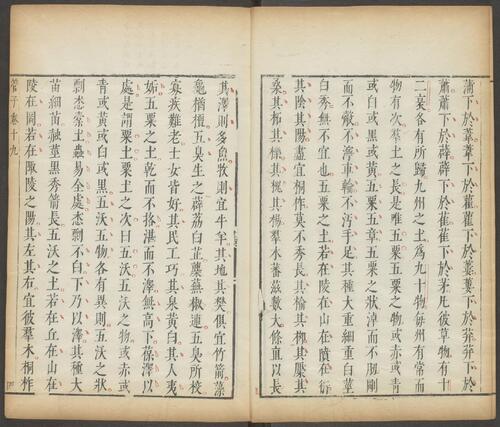 蒲下於葦葦下於雚雚下於蔞蔞下於荓荓下於
蕭蕭下於薜薜下於萑萑下於茅凡彼草物有十
二衰各有所歸九州之土為九十物每州有常而
物有次羣土之長是唯五粟五粟之物或赤或青
或白或黑或黃五粟五章五粟之狀淖而不肕剛
而不觳不濘車輪不污手足其種大重細重白莖
白秀無不宜也五粟之土若在陵在山在隫在衍
其陰其陽盡宜桐柞莫不秀長其榆其柳其檿其
桑其柘其櫟其槐其楊羣木蕃滋數大條直以長
其澤則多魚牧則宜牛羊其地其樊俱宜竹箭藻
龜楢檀五臭生之薜荔白芷蘪蕪椒連五臭所校
寡疾難老士女皆好其民工巧其泉黃白其人夷
姤五粟之土乾而不挌湛而不澤無高下葆澤以
處是謂粟土粟土之次曰五沃五沃之物或赤或
青或黃或白或黑五沃五物各有異則五沃之狀
剽怸橐土蟲易全處怸剽不白下乃以澤其種大
苗細苗赨莖黑秀箭長五沃之土若在丘在山在
陵在岡若在陬陵之陽其左其右宜彼羣木桐柞
管子卷十九